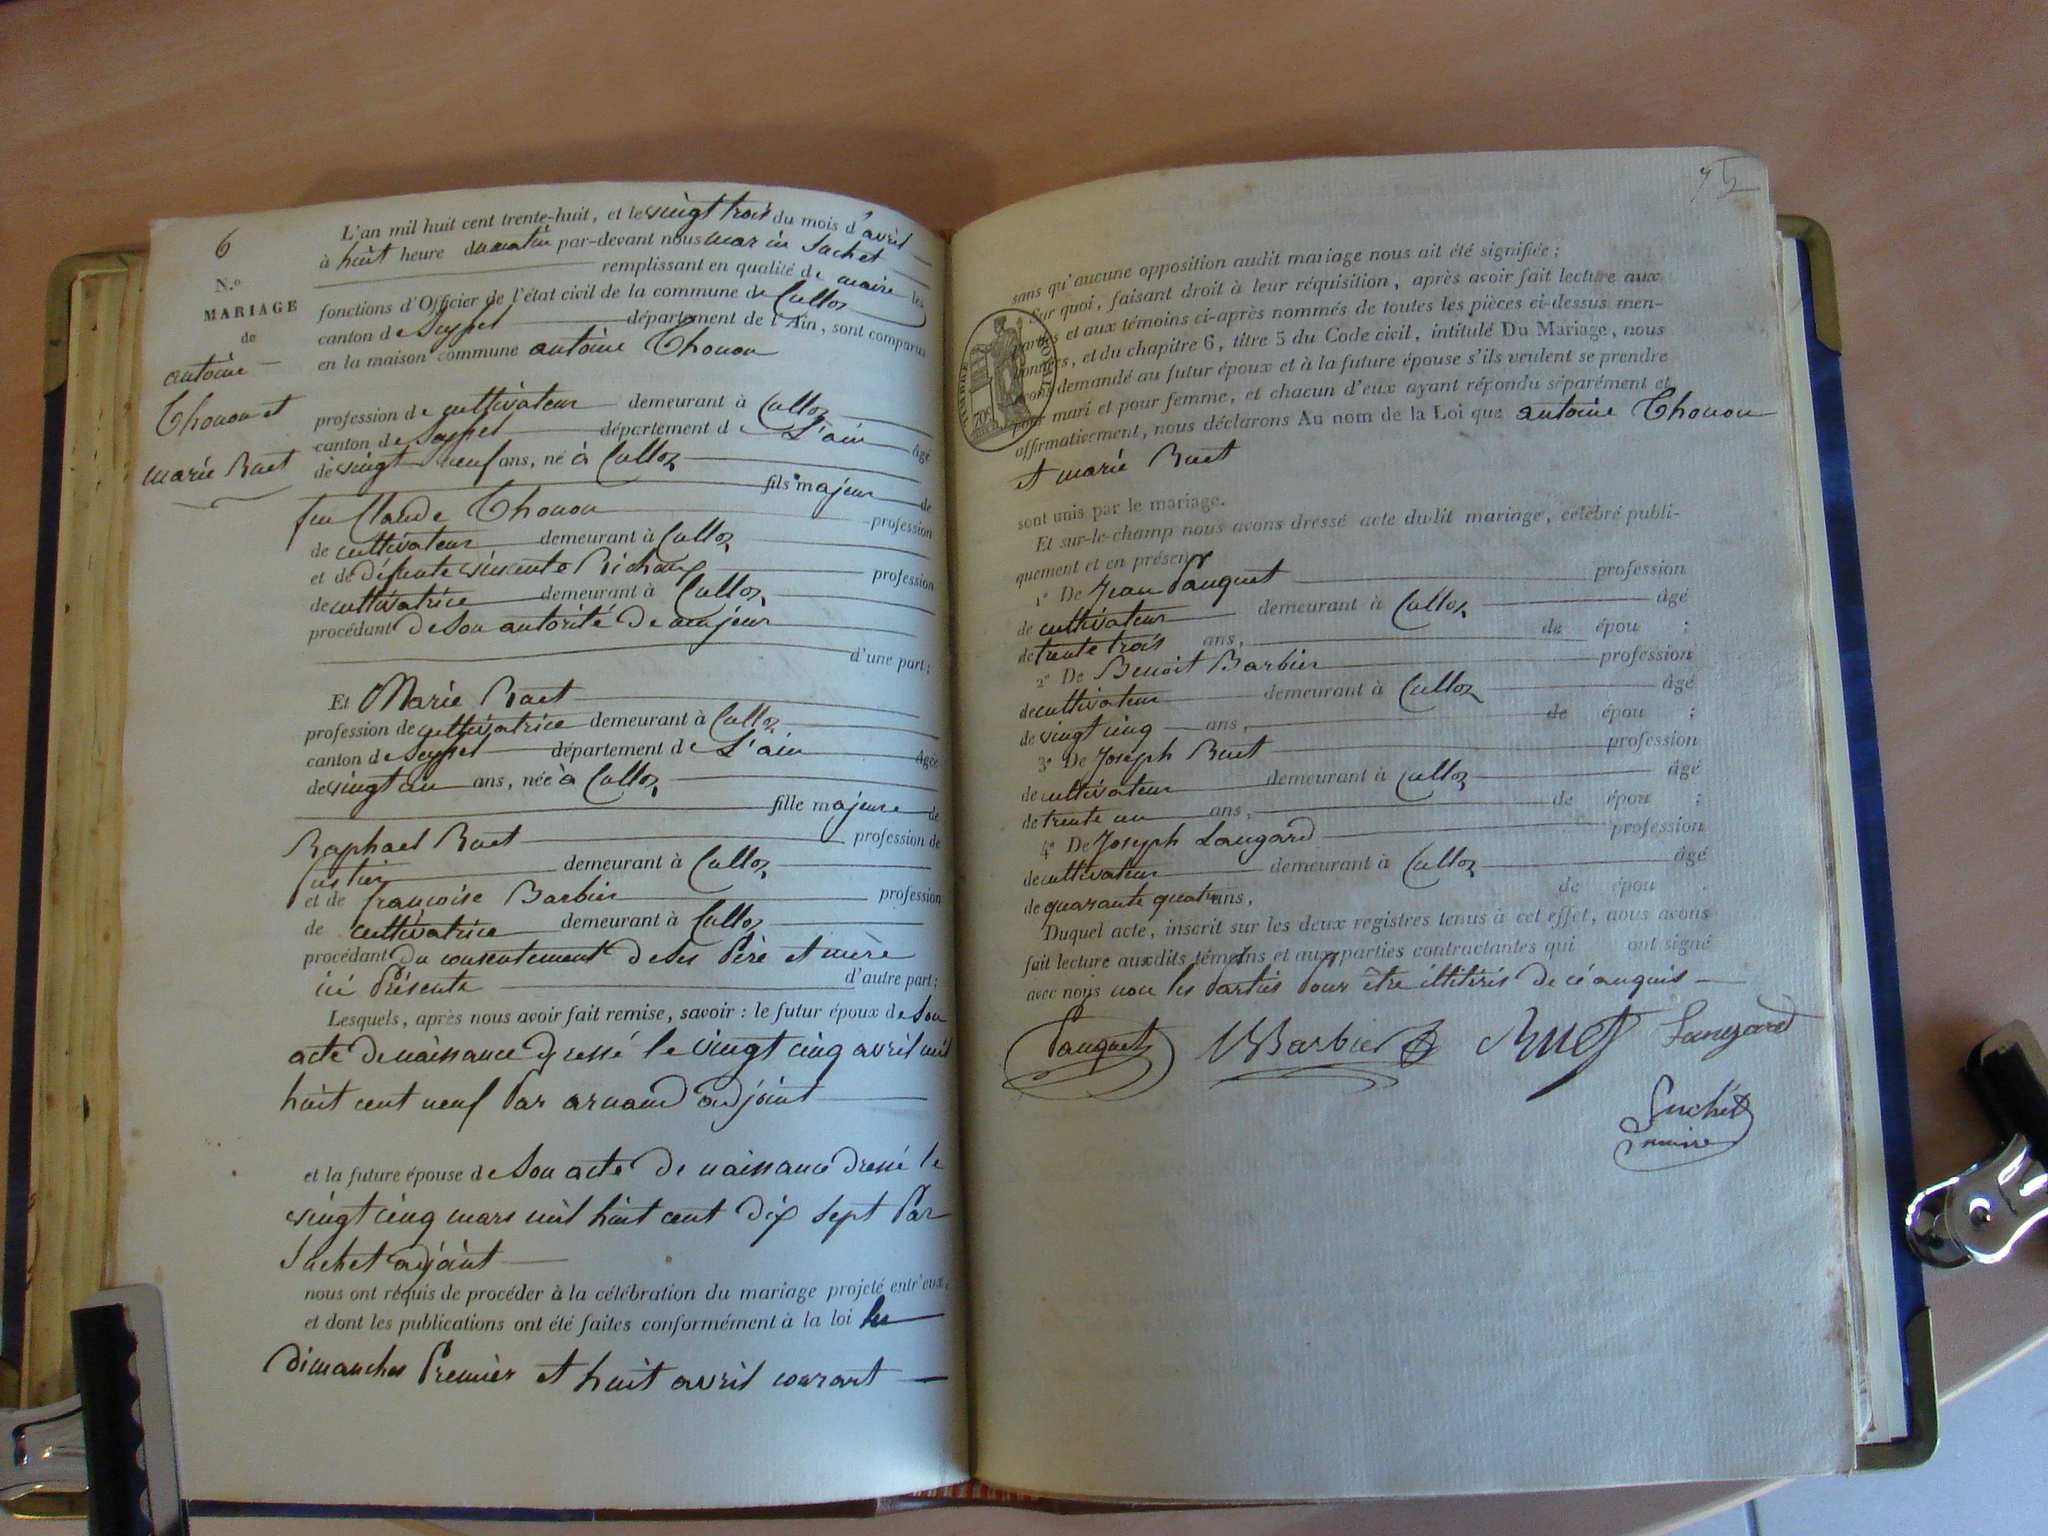 6
N.o
MARIAGE
de
antoine
Thonon et
marie Ruet
L'an mil huit cent trente-huit, et le vingt trois du mois d'avril
à huit heure du matin par-devant nous marin Suchet
remplissant en qualité de maire les
fonctions d'Officier de l'état civil de la commune de Culloz
canton de Seyssel département de l'Ain, sont comparus
en la maison commune antoine Thonon
profession de cultivateur demeurant à Culloz
canton de Seyssel département de L'ain âgé
de vingt neuf ans, né à Culloz
fils majeur de
feu Claude Thonon profession
de cultivateur demeurant à Culloz
et de défunte vincente profession
de cultivatrice demeurant à Culloz
procédant de son autorité de majeur
d'une part;
Et Marie Ruet
profession de cultivatrice demeurant à Culloz
canton de Seyssel département de L'ain âgée
de vingt un ans, née à Culloz
fille majeure de
Raphael Ruet profession de
demeurant à Culloz
et de françoise Barbier profession
de cultivatrice demeurant à Culloz
procédant du consentement de ses Père et mère
ici Présente d'autre part;
Lesquels, après nous avoir fait remise, savoir: le futur époux de son
acte de naissance dressé le vingt cinq avril mil
huit cent neuf Par arnaud adjoint
et la future épouse de son acte de naissance dressé le
vingt cinq mars mil huit cent dix sept Par
Suchet adjoint
nous ont réquis de procéder à la célébration du mariage projeté entr'eux,
et dont les publications ont été faites conformément à la loi les
dimanches Premier et huit avril courant
75
sans qu'aucune opposition audit mariage nous ait été signifiée;
Sur quoi, faisant droit à leur réquisition, après avoir fait lecture aux
parties et aux témoins ci-après nommés de toutes les pièces ci-dessus men-
tionnées, et du chapitre 6, titre 5 du Code civil, intitulé Du Mariage, nous
avons demandé au futur époux et à la future épouse s'ils veulent se prendre
pour mari et pour femme, et chacun d'eux ayant répondu séparément et
affirmativement, nous déclarons Au nom de la Loi que antoine Thonon
et marie Ruet
sont unis par le mariage.
Et sur-le-champ nous avons dressé acte dudit mariage, célébré publi-
quement et en présence
1° De Jean Pauguet profession
de cultivateur demeurant à Culloz âgé
de trente trois ans, de épou ;
2° De Benoit Barbier profession
de cultivateur demeurant à Culloz âgé
de vingt cinq ans, de épou ;
3° De Joseph Ruet profession
de cultivateur demeurant à Culloz âgé
de trente un ans, de épou ;
4° De Joseph Laugard profession
de cultivateur demeurant à Culloz âgé
de quarante quatre ans, de épou .
Duquel acte, inscrit sur les deux registres tenus à cet effet, nous avons
fait lecture auxdits témoins et aux parties contractantes qui ont signé
avec nous non les Parties Pour être illitéris de cé anquis
Pauguet Barbier Ruet Laugard
Suchet
maire